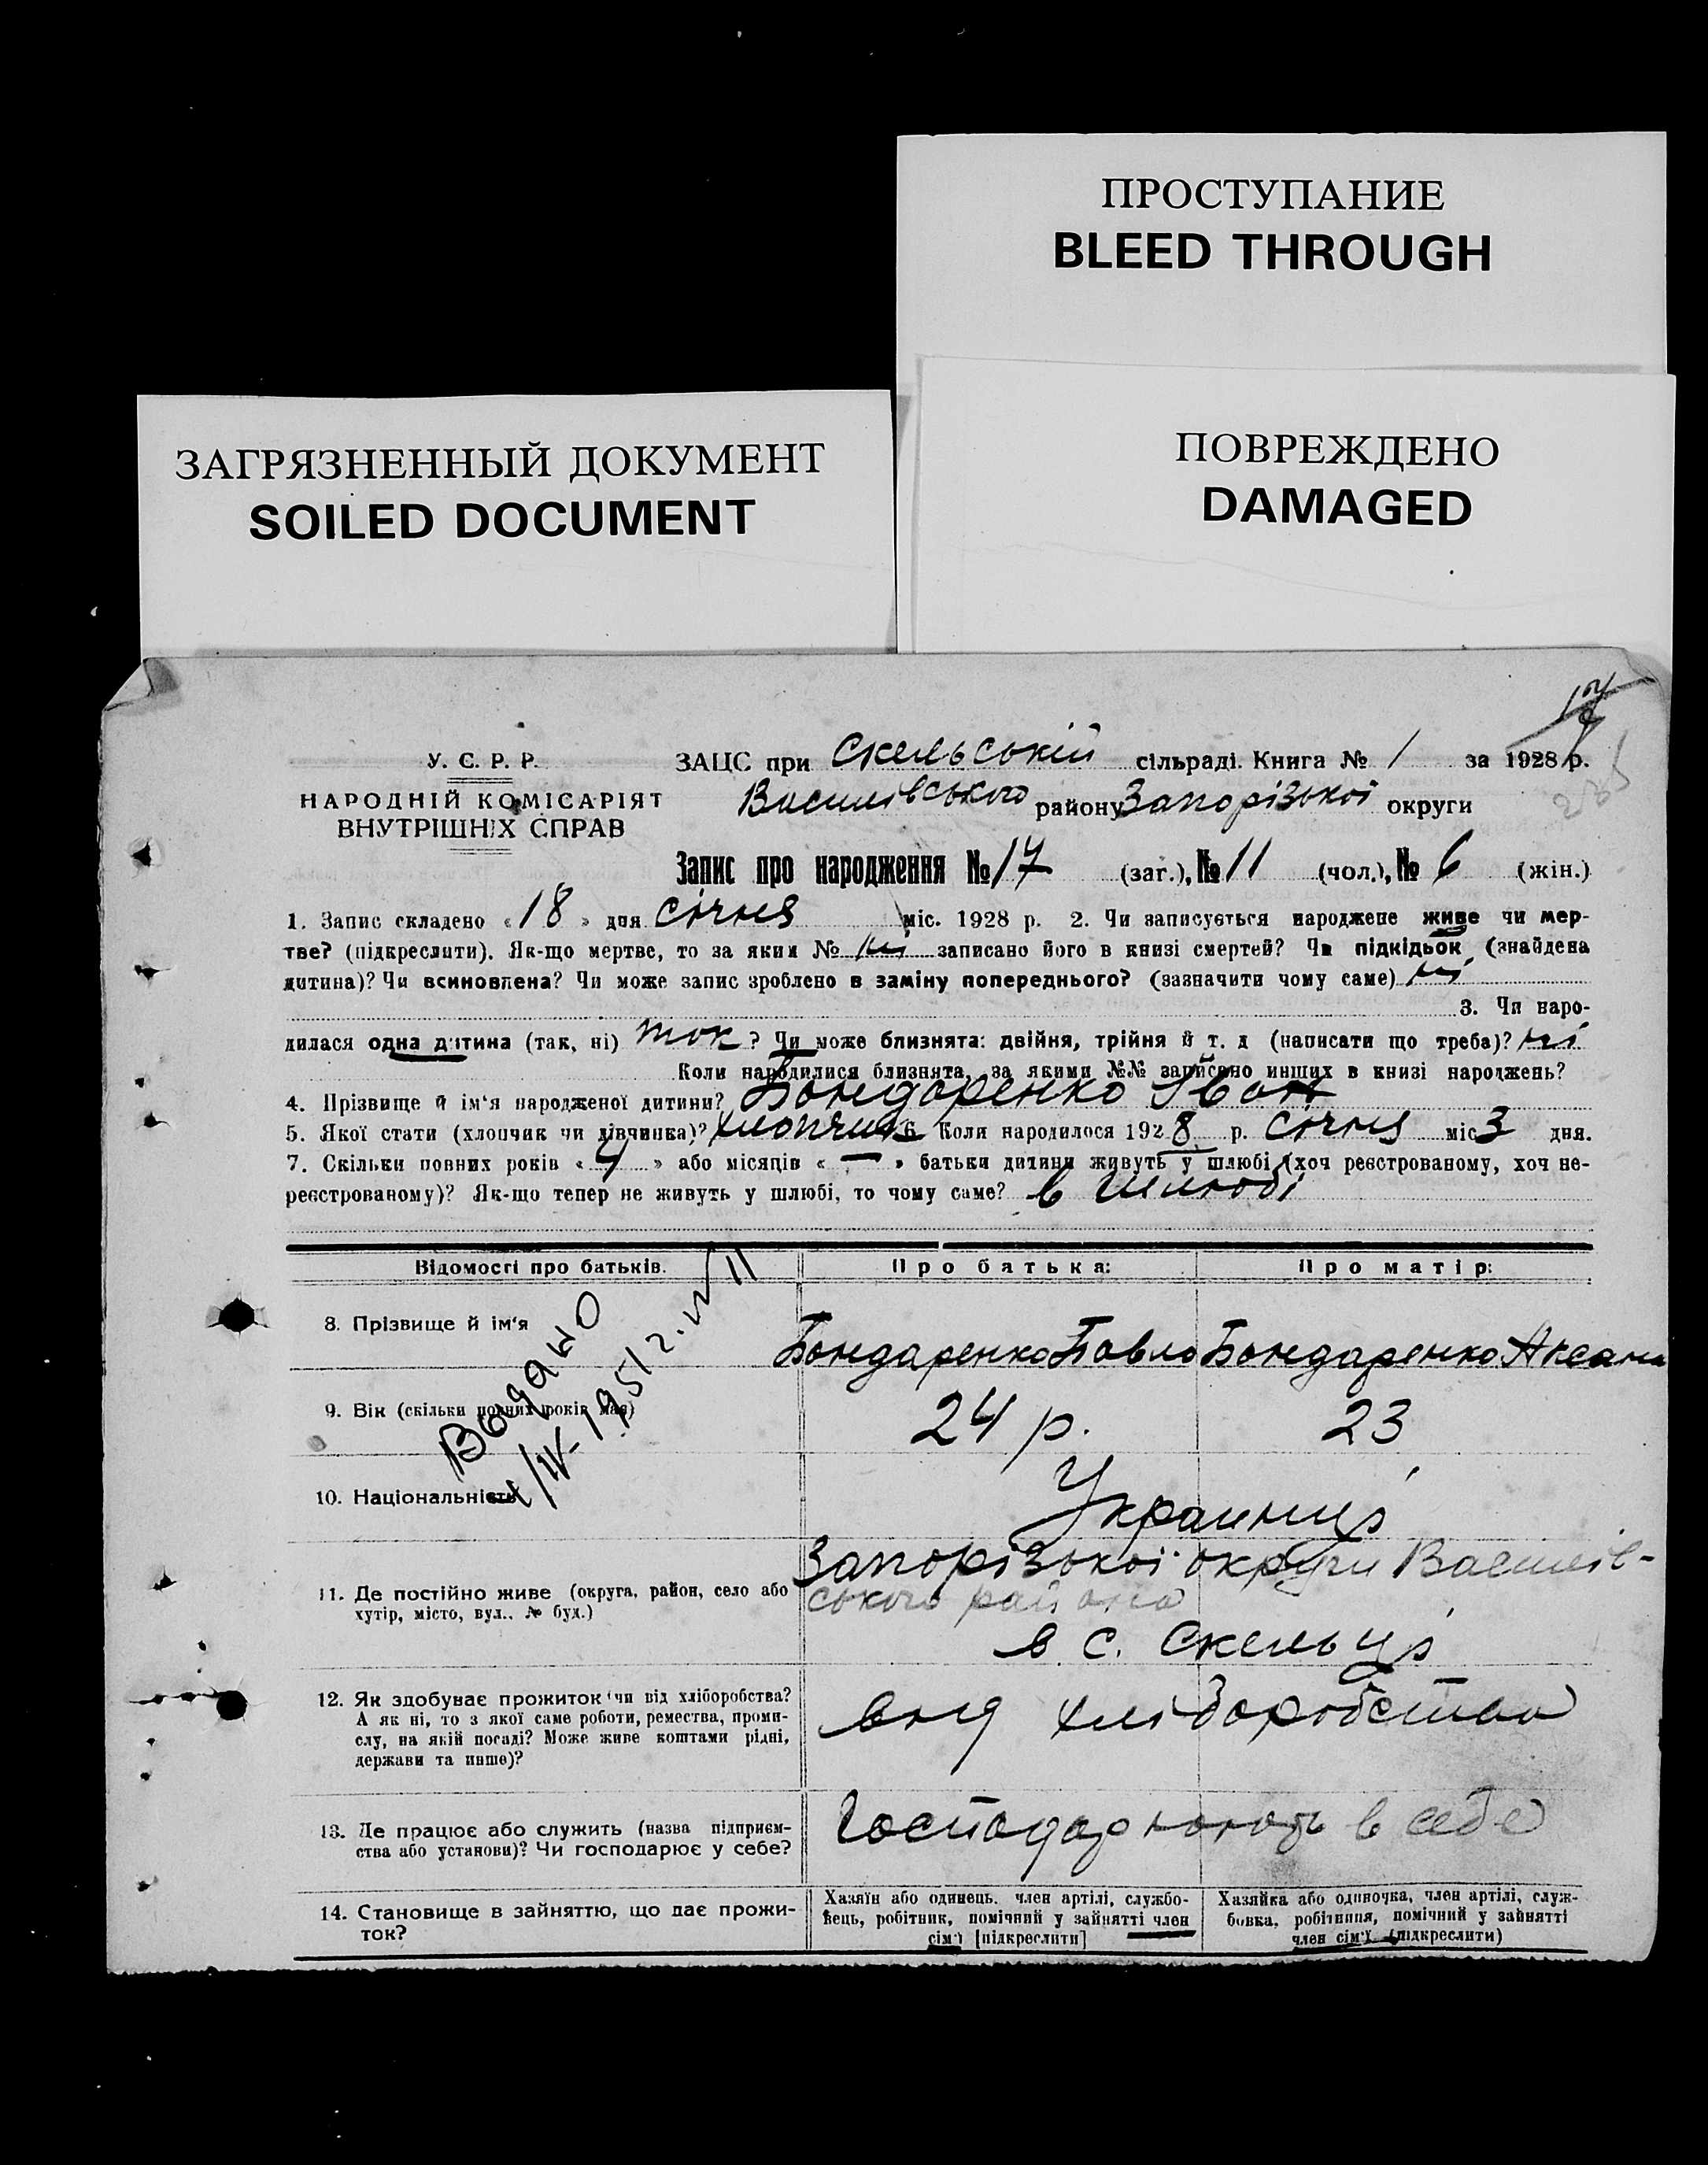 ПРОСТУПАНИЕ
BLEED THROUGH
ЗАГРЯЗНЕННЫЙ ДОКУМЕНТ
SOILED DOCUMENT
ПОВРЕЖДЕНО
DAMAGED
17
У. С. Р. Р.
НАРОДНІЙ КОМІСАРІЯТ
ВНУТРІШНІХ СПРАВ
ЗАЦС при Скельській сільраді. Книга № 1 за 1928 р.
Василівського району Запорізької округи
Запис про народження № 17 (заг.), № 11 (чол.), № 6 (жін.)
1. Запис складено « 18 » дня січня міс. 1928 р. 2. Чи записується народжене живе чи мер-
тве? (підкреслити). Як-що мертве, то за яким № ні записано його в книзі смертей? Чи підкідьок (знайдена
дитина)? Чи всиновлена? Чи може запис зроблено в заміну попереднього? (зазначити чому саме) ні
3. Чи наро-
дилася одна дитина (так, ні) так ? Чи може близнята: двійня, трійня й т. д (написати що треба)? ні
Коли народилися близнята, за якими №№ записано инших в книзі народжень?
4. Прізвище й ім'я народженої дитини? Бондаренко Іван
5. Якої стати (хлопчик чи дівчинка)? хлопчик 6. Коли народилося 1928 р. січня міс 3 дня.
7. Скільки повних років « 4 » або місяців « — » батьки дитини живуть у шлюбі (хоч реєстрованому, хоч не-
реєстрованому)? Як-що тепер не живуть у шлюбі, то чому саме? в шлюбі
Відомості про батьків.
Про батька:
Про матір:
8. Прізвище й ім'я
Бондаренко Павло
Бондаренко Аксана
9. Вік (скільки повних років має)
24 р.
23
Выдано
/IV-1951 г.
10. Національність
Украинці
11. Де постійно живе (округа, район, село або
хутір, місто, вул., № буд.)
Запорізької округи Василів-
ського района
в с. Скельці
12. Як здобуває прожиток чи від хліборобства?
А як ні, то з якої саме роботи, ремества, проми-
слу, на якій посаді? Може живе коштами рідні,
держави та инше)?
вид хліборобства
13. Де працює або служить (назва підприєм-
ства або установи)? Чи господарює у себе?
Господарюють в себе
14. Становище в зайняттю, що дає прожи-
ток?
Хазяїн або одинець, член артілі, службо-
вець, робітник, помічний у зайнятті член
сім'ї [підкреслити]
Хазяйка або одиночка, член артілі, служ-
бовка, робітниця, помічний у зайнятті
член сім'ї (підкреслити)